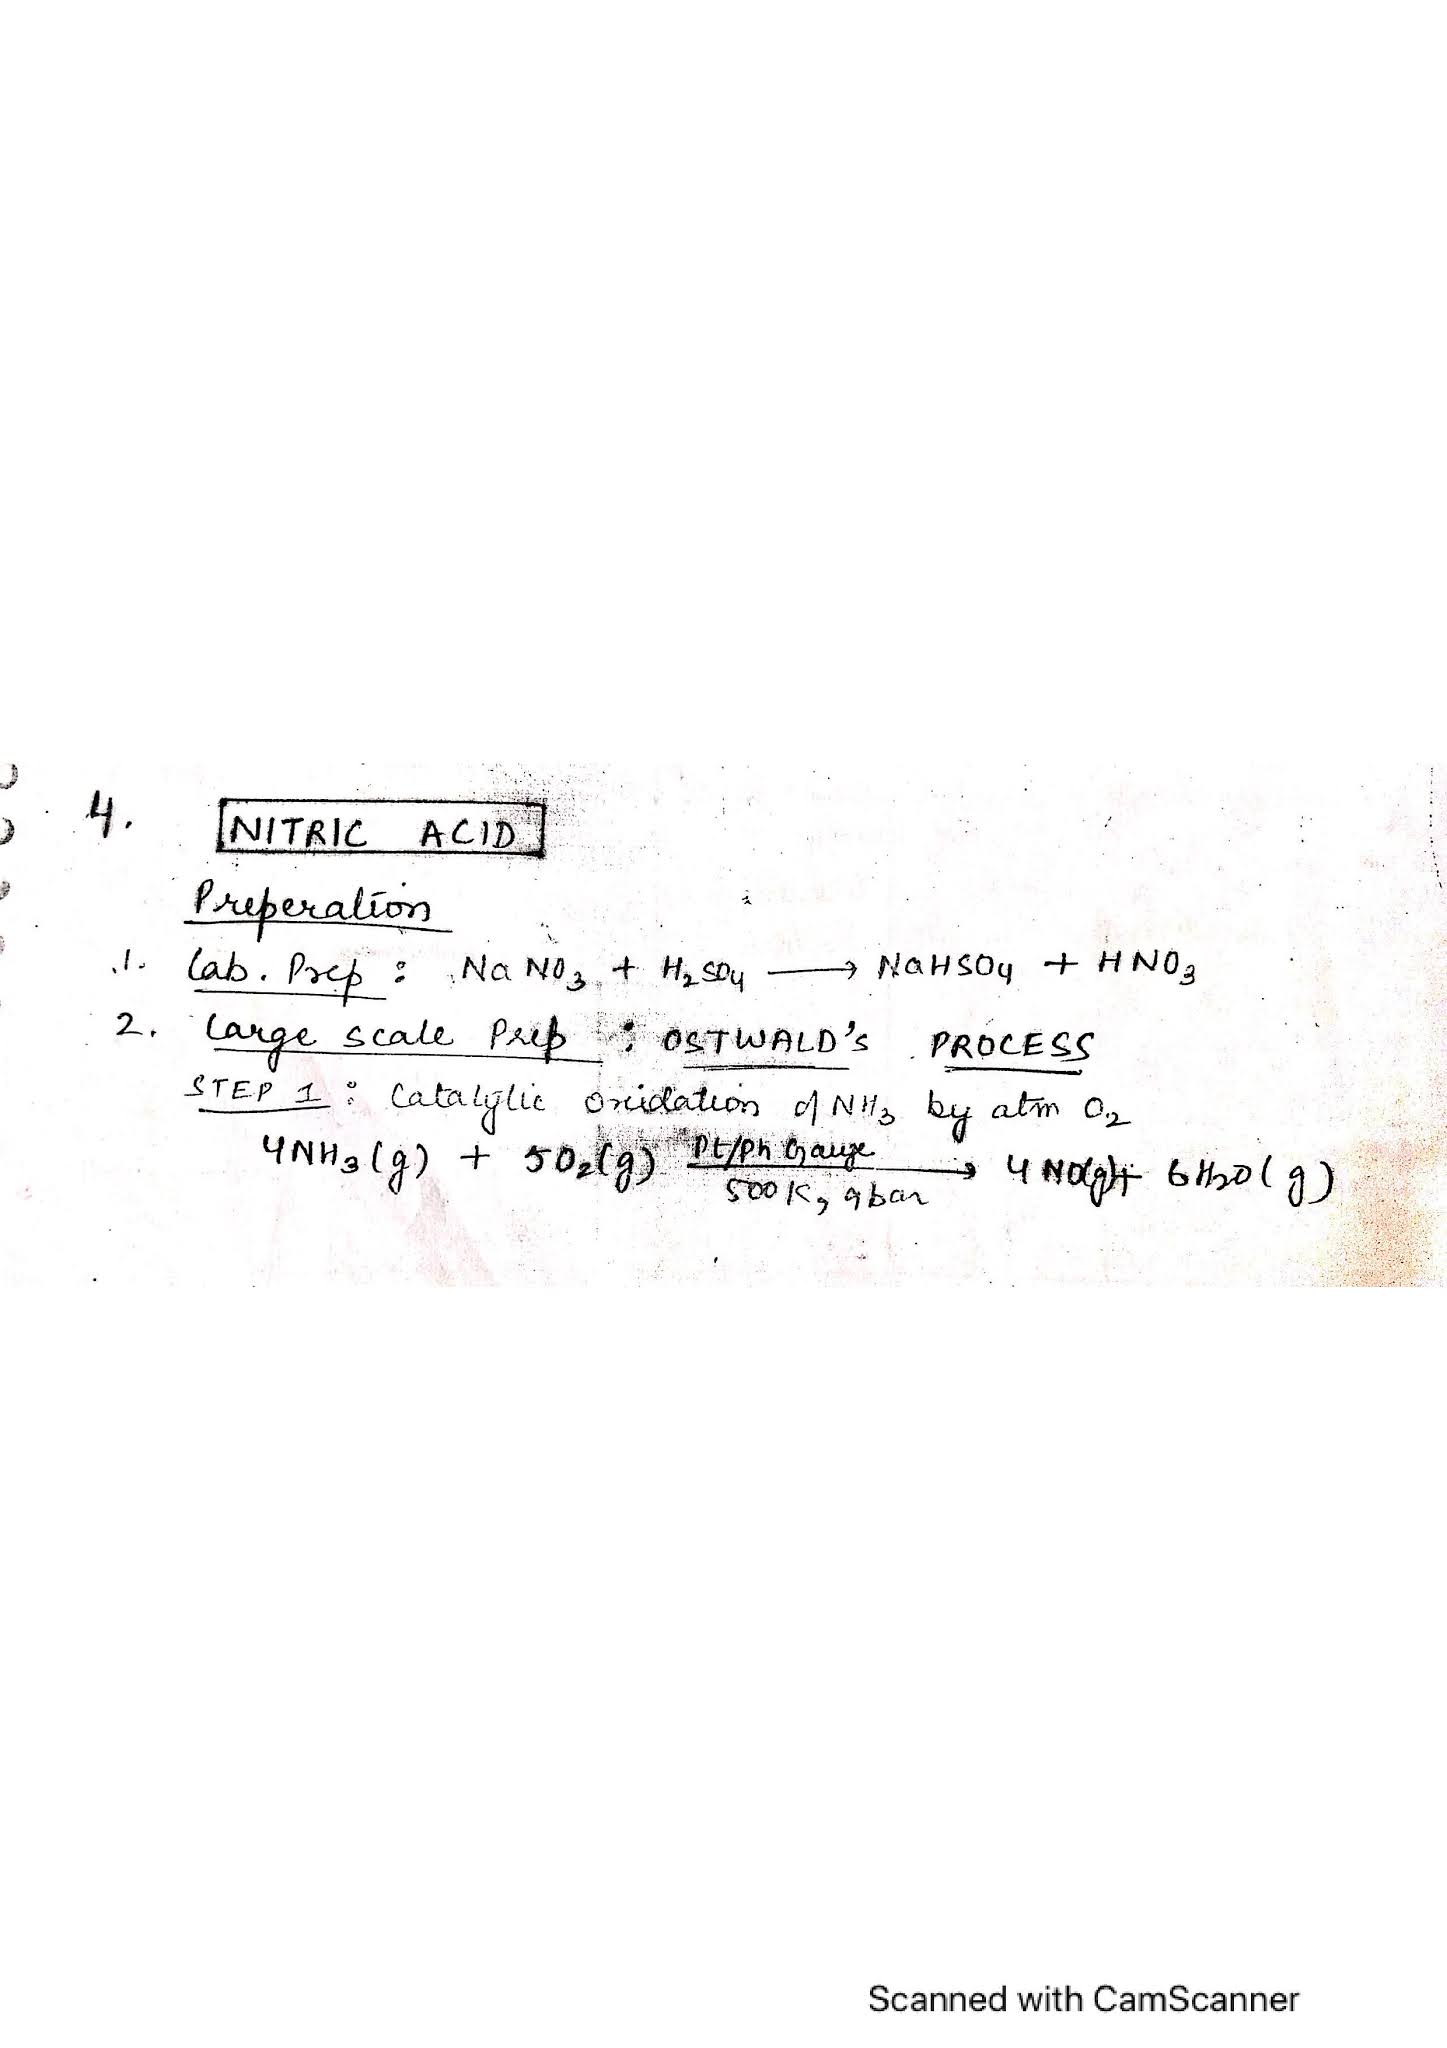 4. NITRIC ACID
Preperation
1. Lab. Prep : NaNO3 + H2SO4 → NaHSO4 + HNO3
2. Large scale Prep : OSTWALD's PROCESS
STEP 1 : Catalytic oxidation of NH3 by atm O2
4NH3(g) + 5O2(g) Pt/Ph Gauze → 4NO(g) + 6H2O(g)
500K, 9bar
Scanned with CamScanner